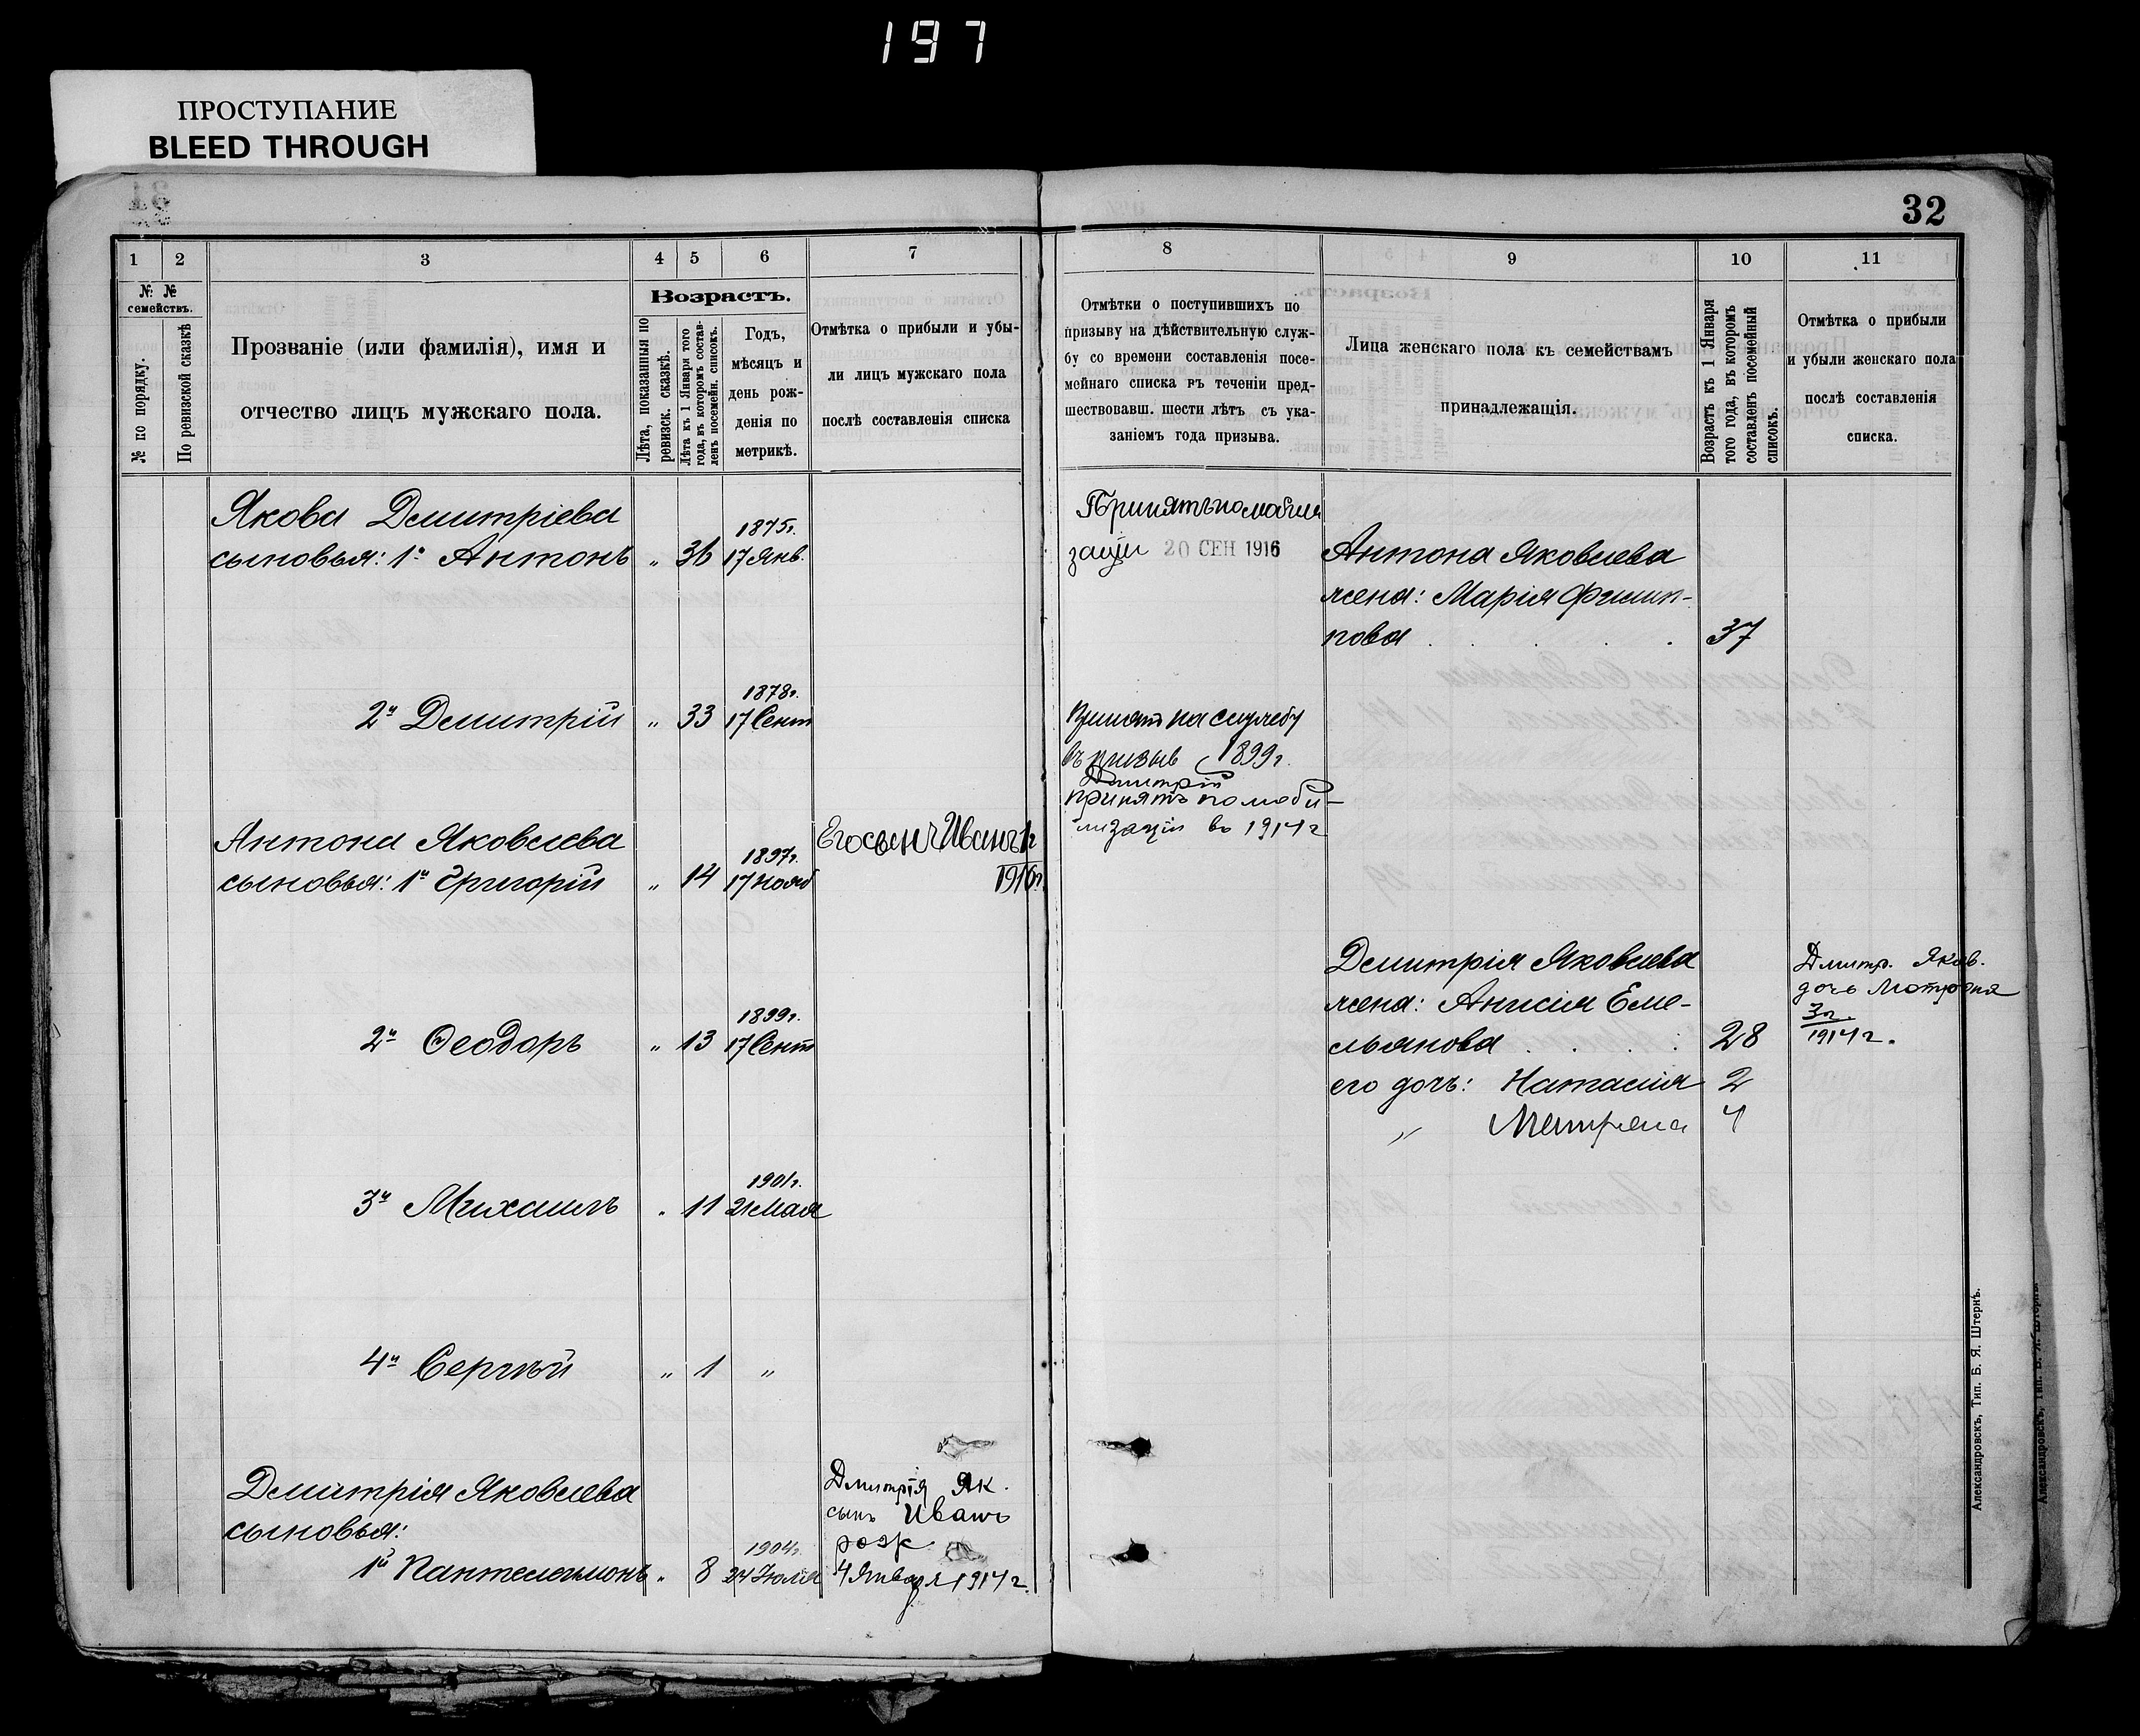 197
ПРОСТУПАНИЕ
BLEED THROUGH
32
1
2
3
4
5
6
7
№ №
семействъ.
№ по порядку.
По ревизской сказкѣ
Прозваніе (или фамилія), имя и
отчество лицъ мужскаго пола.
Возрастъ.
Лѣта, показанныя по
ревизск. сказкѣ.
Лѣта къ 1 Января того
года, въ которомъ состав-
ленъ посемейн. списокъ.
Годъ,
мѣсяцъ и
день рож-
денія по
метрикѣ.
Отмѣтка о прибыли и убы-
ли лицъ мужскаго пола
послѣ составленія списка
Якова Дмитріева
сыновья: 1й Антонъ " 36 1875г. 17 Янв.
2й Дмитрій " 33 1878г. 17 Сент
Антона Яковлева
сыновья: 1й Григорій " 14 1897г. 17 нояб
Его сынъ Иванъ 1г
1916г.
2й Ѳеодоръ " 13 1899г. 17 Сент
3й Михаилъ " 11 1901г. 21 Мая
4й Сергѣй " 1 "
Дмитрія Яковлева
сыновья:
1й Пантелеимонъ " 8 1904г. 24 Іюля
Дмитрія Як.
сынъ Иванъ
рож
4 Января 1914г.
8
9
10
11
Отмѣтки о поступившихъ по
призыву на дѣйствительную служ-
бу со времени составленія посе-
мейнаго списка въ теченіи пред-
шествовавш. шести лѣтъ съ ука-
заніемъ года призыва.
Лица женскаго пола къ семействамъ
принадлежащія.
Возрастъ къ 1 Января
того года, въ которомъ
составленъ посемейный
списокъ.
Отмѣтка о прибыли
и убыли женскаго пола
послѣ составленія
списка.
Принятъ по мобили
заціи 20 СЕН 1916
Антона Яковлева
жена: Марія Филип-
пова . . . 37
Принят на службу
въ призыв 1899г.
Дмитрій
принятъ по моби-
лизаціи въ 1914г
Дмитрія Яковлева
жена: Анисія Еме-
льянова . . . 28
его дочь: Наталія 2
" Матрена 4
Дмитр. Яков.
дочь Мотрона
3г.
1914г.
Александровскъ, Тип. Б. Я. Штернъ.